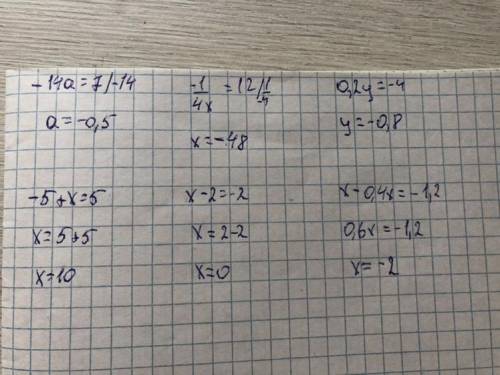 -14a=7/-14
a=-0,5
-1/4x =12/1/-4
x=-48
0,2y=-4
y=-0,8
-5+x=5
x=5+5
x=10
x-2=-2
x=2-2
x=0
x-0,4x=-1,2
0,6x=-1,2
x=-2